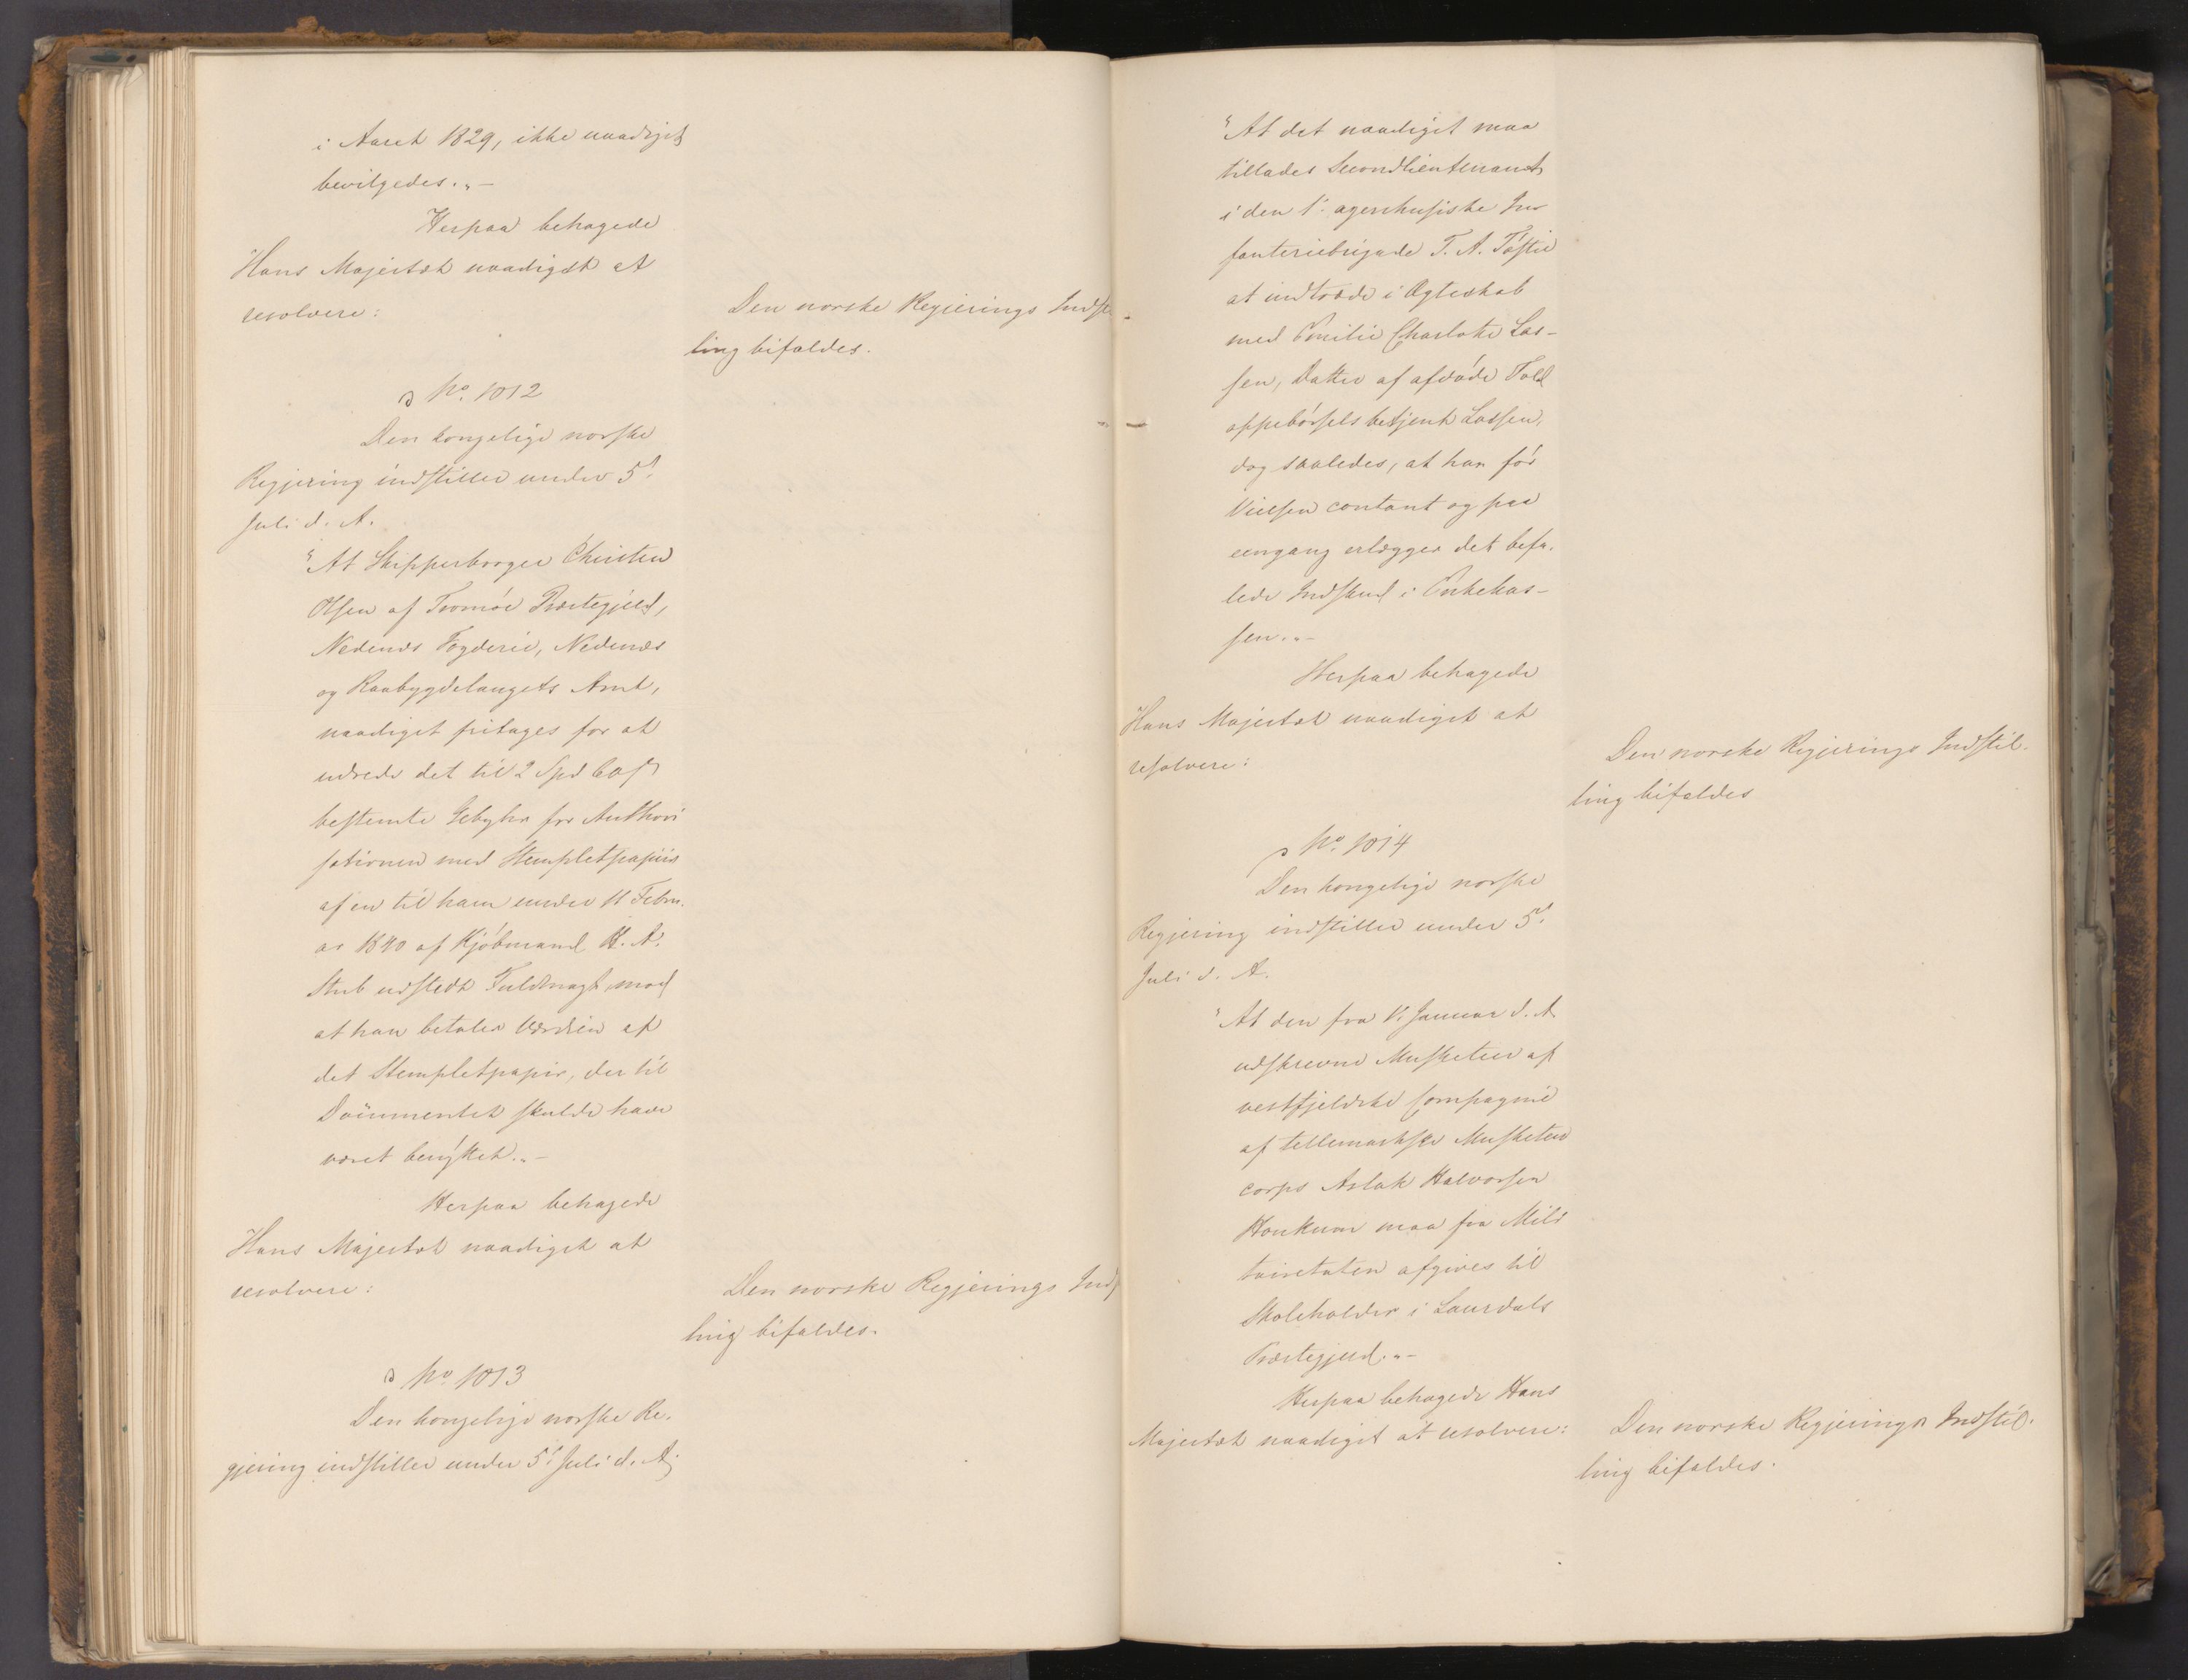 i Aaret 1829, ikke naadigst
bevilgedes."-
Herpaa behagede
Hans Majestæt naadigst at
resolvere:
Den norske Regjerings Indst
ling bifaldes.
No. 1012
Den kongelige norske
Regjering indstiller under 5t.
Juli d. A.
"At Skipperborger Christen
Olsen af Tromöe Præstegjeld,
Nedenæs Fogderie, Nedenæs
og Raabygdelaugets Amt,
naadigst fritages for at
udrede det til 2 Spd 60 s
bestemte Gebyhr for Authori
sationen med Stempletpapiir
af en til ham under 11 Febru.
ar 1840 af Kjöbmand H. A.
Stub udstedt Fuldmagt, mod
at han betaler Værdien af
det Stempletpapir, der til
Documentet skulde have
været benÿttet."-
Herpaa behagede
Hans Majestæt naadigst at
resolvere:
Den norske Regjerings Inds
ling bifaldes.
No. 1013
Den kongelige norske Re.
gjering indstiller under 5t Juli d. A.
"At det naadigst maa
tillades Secondlieutenant
i den 1e. agershusiske In
fanteriebrigade T. A.
at indtræde i Ægteskab
med Emilie Charlotte Las-
sen, Datter af afdøde Told
oppebörselsbetjent Lassen,
dog saaledes, at han för
Vielsen contant og paa
eengang erlægger det befa.
lede Indskud i Enkekas-
sen."-
Herpaa behagede
Hans Majestæt naadigst at
resolvere:
Den norske Regjerings Indstil.
ling bifaldes
No. 1014
Den kongelige norske
Regjering indstiller under 5t.
Juli d. A.
"At den fra 1. Januar d. A.
udskrevne Musketeer af
vestfjeldske Compagnie
af tellemarkske Musketeer
corps Aslak Halvorsen
maa fra Mili
tairetaten afgives til
Skoleholder i Laurdals
Præstegjeld."-
Herpaa behagede Hans
Majestæt naadigst at resolvere:
Den norske Regjerings Indstil.
ling bifaldes.